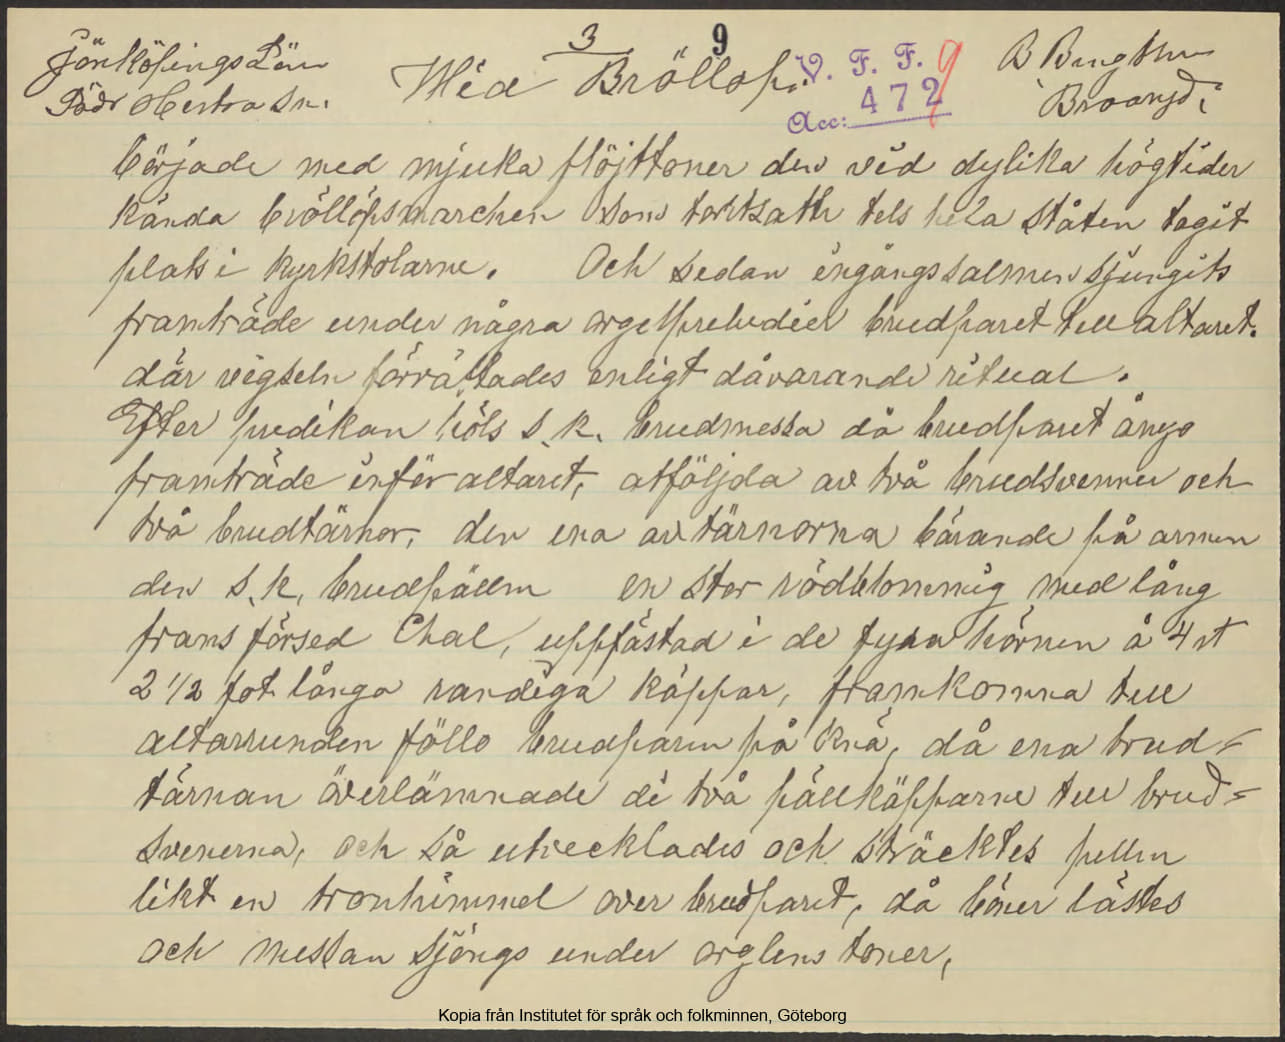 Jönköpings Län
Södr Hestra Sn.
3
9
Med Bröllop.
V. F. F.
Acc: 472
9
B Bengtsson
började med mjuka flöjttoner den vid dylika högtider
kända bröllopsmarchen som fortsatte tels hela ståten tagit
plats i kyrkstolarne. Och sedan ingångssalmen sjungits
framträde under några orgelpreludier brudparet till altaret.
där vigseln förrättades enligt dåvarande ritual.
Efter predikan höls s.k. brudmessa då brudparet ånyo
framträde inför altaret, atföljda av två brudsvenner och
två brudtärnor, den ena av tärnorna bärande på armen
den s.k. brudpällen en stor rödblommig med lång
frans försed Chal, uppfästad i de fyra hörnen å 4 st
2 1/2 fot långa randiga käppar, framkomna till
altarrunden föllo brudparen på knä, då ena brud-
tärnan överlämnade de två pällkäpparne till brud-
svenerna, och så utvecklades och sträcktes pellen
likt en tronhimmel over brudparet, då böner lästes
och messan sjöngs under orglens toner,
Kopia från Institutet för språk och folkminnen, Göteborg